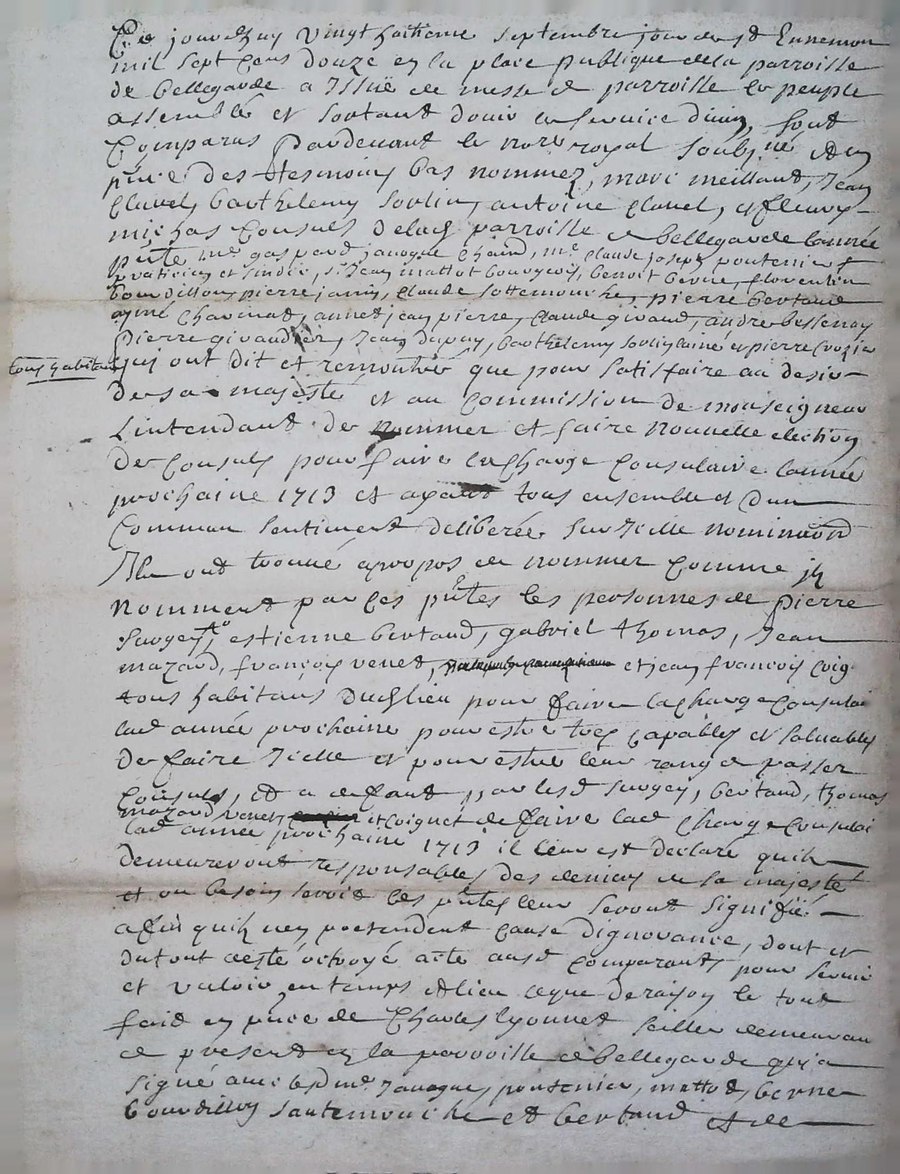 Ce jourdhuy vingt huitieme septembre jour de
mil sept cens douze en la place publique de la parroisse
de bellegarde a Issuë de messe de parroisse le peuple
assemblé et sortant douir le service divin, sont
Comparus Pardevant le nore royal soubsigné et en
pnce des tesmoins bas nommez, marc meillant, Jean
Clavel, barthelemy soulin, antoine Clavel, et fleury
michas Consuls de lad parroisse de bellegarde lannée
pnte me gaspard Janogue me claude joseph pontenier
praticien et sindic, sr Jean mattot bourgeois, benoit berne, florentin
bourdillon, pierre janin, claude sottemouche, pierre bertand
aymé Charmat, annet jean pierre, claude givaud, andre bessenay
pierre givaudier, Jean dupuy, barthelemy soulin laine et pierre Crozier
tous habitans
qui ont dit et remontré que pour satisfaire au desir
de sa majesté et au Commission de monseigneur
Lintendant de nommer et faire nouvelle election
de Consuls pour faire la Charge Consulaire lannée
prochaine 1713 et ayant tous ensemble et dun
Commun sentiment deliberée sur Icelle
Ils ont trouvé apropos de nommer Comme ils
nomment par ces pntes les personnes de pierre
Surgey, estienne bertand, gabriel thomas, Jean
mazard, françois venet, et jean françois Coig
tous habitans dud lieu pour faire la Charge Consulai
lad année prochaine pour estre tres Capables et solvables
de faire Icelle et pour estre leur rang de passer
Consuls, Et a deffaut par lesd surgey, bertand, thomas
mazard, venet, et Coignet de faire lad Charge Consulai
lad année prochaine 1713 il leur est declaré quils
demeureront responsables des deniers de sa majesté
et ou besoin seroit les pntes leur seront signiffié
affin quils nen pretendent Cause dignorance, dont et
du tout a esté octroyé acte ausd Comparants pour servir
et valoir en temps et lieu ce que de raison le tout
fait en pnce de Charles lyonnet sellier demeuran
de present en la parroisse de bellegarde qui a
signé avec lesd me Janogue, pontenier, mattot, berne
bourdillon sautemouche et bertand